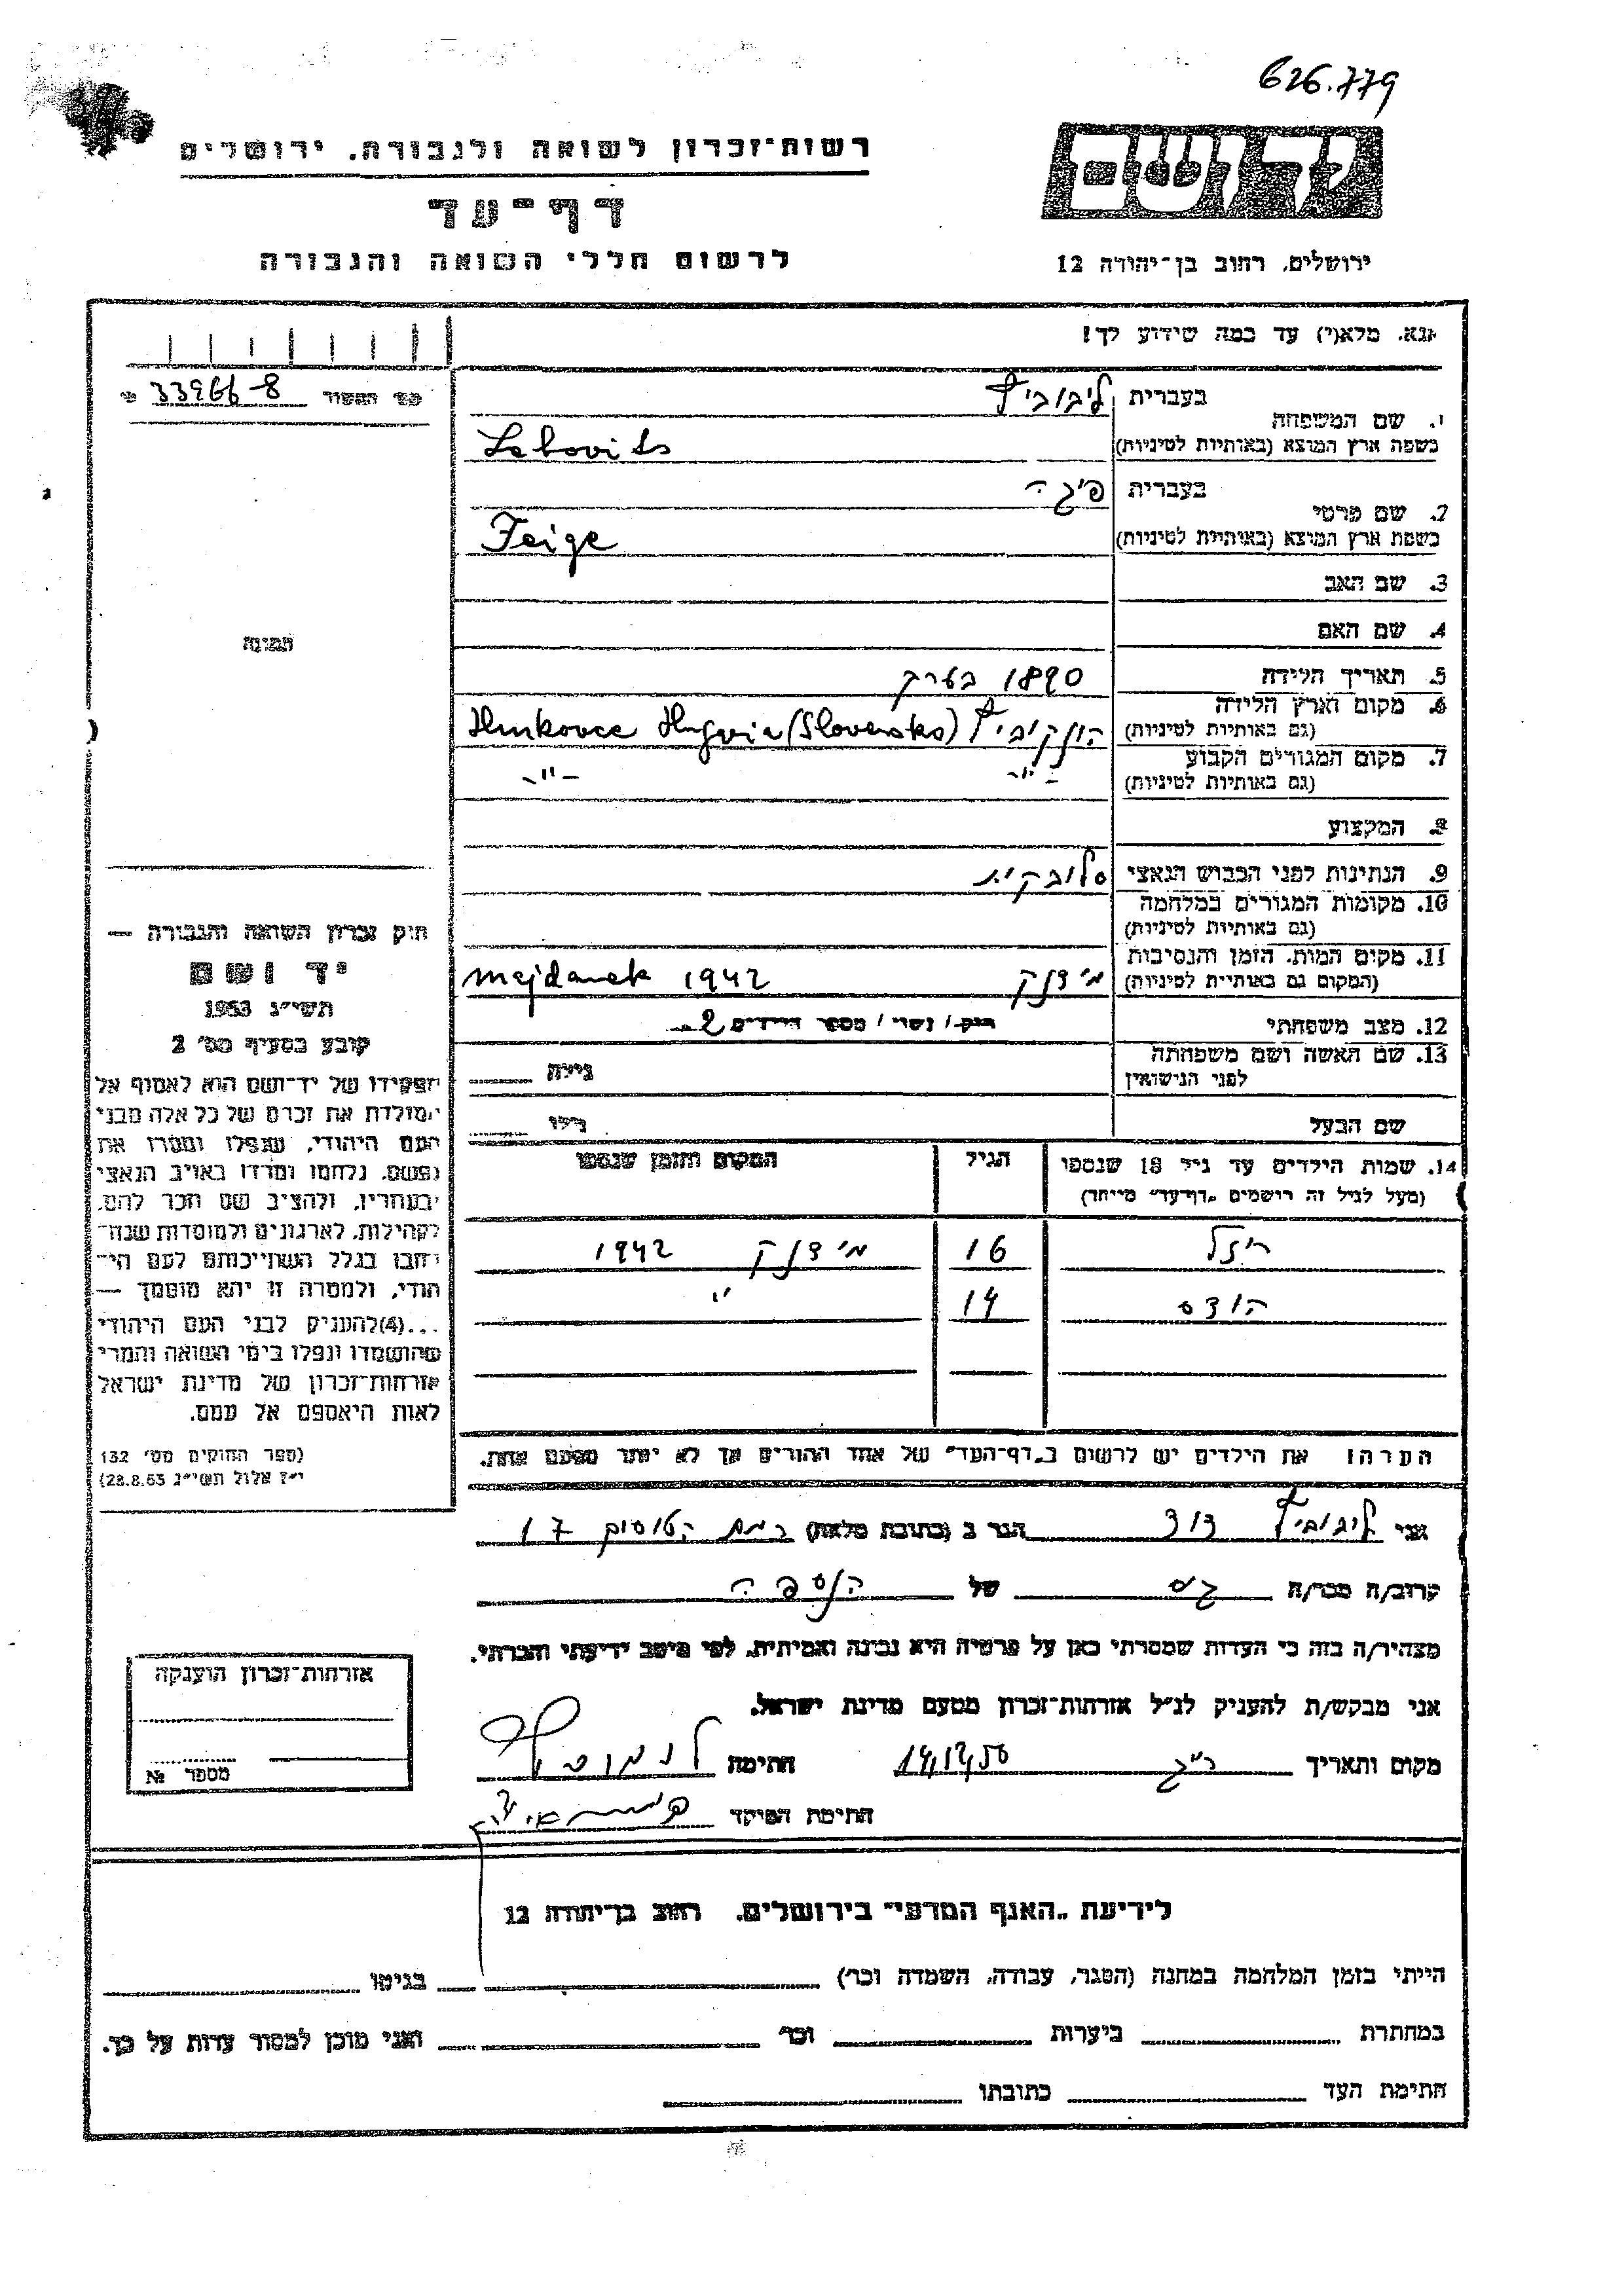 626.779
רשות־זכרון לשואה ולגבורה, ירושלים
דף־עד
לרשום חללי השואה והגבורה
ירושלים, רחוב בן־יהודה 12
נא, מלא(י) עד כמה שידוע לך!
33966-8
1. שם המשפחה
בעברית ליבוביץ
בשפת ארץ המוצא (באותיות לטיניות) Lebovits
2. שם פרטי
בעברית פיגה
בשפת ארץ המוצא (באותיות לטיניות) Feige
3. שם האב
4. שם האם
5. תאריך הלידה 1890 בערך
6. מקום וארץ הלידה
(גם באותיות לטיניות) (Slovensko)
7. מקום המגורים הקבוע
(גם באותיות לטיניות) -"- -"-
8. המקצוע
9. הנתינות לפני הכבוש הנאצי סלובקית
10. מקומות המגורים במלחמה
(גם באותיות לטיניות)
11. מקום המות, הזמן והנסיבות
(המקום גם באותיות לטיניות) מידנק majdanek 1942
12. מצב משפחתי רוק/ נשוי/ מספר הילדים 2
13. שם האשה ושם משפחתה
לפני הנישואין גילה
שם הבעל גילו
14. שמות הילדים עד גיל 18 שנספו הגיל המקום והזמן שנספו
(מעל לגיל זה רושמים „דף־עד” מיוחד)
ריזל 16 מידנק 1942
הודס 14 "
הערה: את הילדים יש לרשום ב„דף־העד” של אחד ההורים אך לא יותר מפעם אחת.
תמונה
חוק זכרון השואה והגבורה —
יד ושם
תשי״ג 1953
קובע בסעיף מס׳ 2
תפקידו של יד־ושם הוא לאסוף אל
המולדת את זכרם של כל אלה מבני
העם היהודי, שנפלו ומסרו את
נפשם, נלחמו ומרדו באויב הנאצי
ובעוזריו, ולהציב שם וזכר להם,
לקהילות, לארגונים ולמוסדות שנח־
רבו בגלל השתייכותם לעם הי־
הודי, ולמטרה זו יהא מוסמך —
...(4)להעניק לבני העם היהודי
שהושמדו ונפלו בימי השואה והמרי
אזרחות־זכרון של מדינת ישראל
לאות היאספם אל עמם.
(ספר החוקים מס׳ 132
י״ז אלול תשי״ג 28.8.53)
אני ליבוביץ דוד הגר ב (כתובת מלאה) רמת 17
קרוב/ה מכר/ה גיס של הנספה
מצהיר/ה בזה כי העדות שמסרתי כאן על פרטיה היא נכונה ואמיתית, לפי מיטב ידיעתי והכרתי.
אני מבקש/ת להעניק לנ״ל אזרחות־זכרון מטעם מדינת ישראל.
מקום ותאריך ר״ג 14/12/56 חתימה
חתימת הפוקד
אזרחות־זכרון הוענקה
מספר №
לידיעת „האגף המדעי” בירושלים, רחוב בן־יהודה 12
הייתי בזמן המלחמה במחנה (הסגר, עבודה, השמדה וכו׳) בגיטו
במחתרת ביערות וכו׳ ואני מוכן למסור עדות על כך.
חתימת העד כתובתו